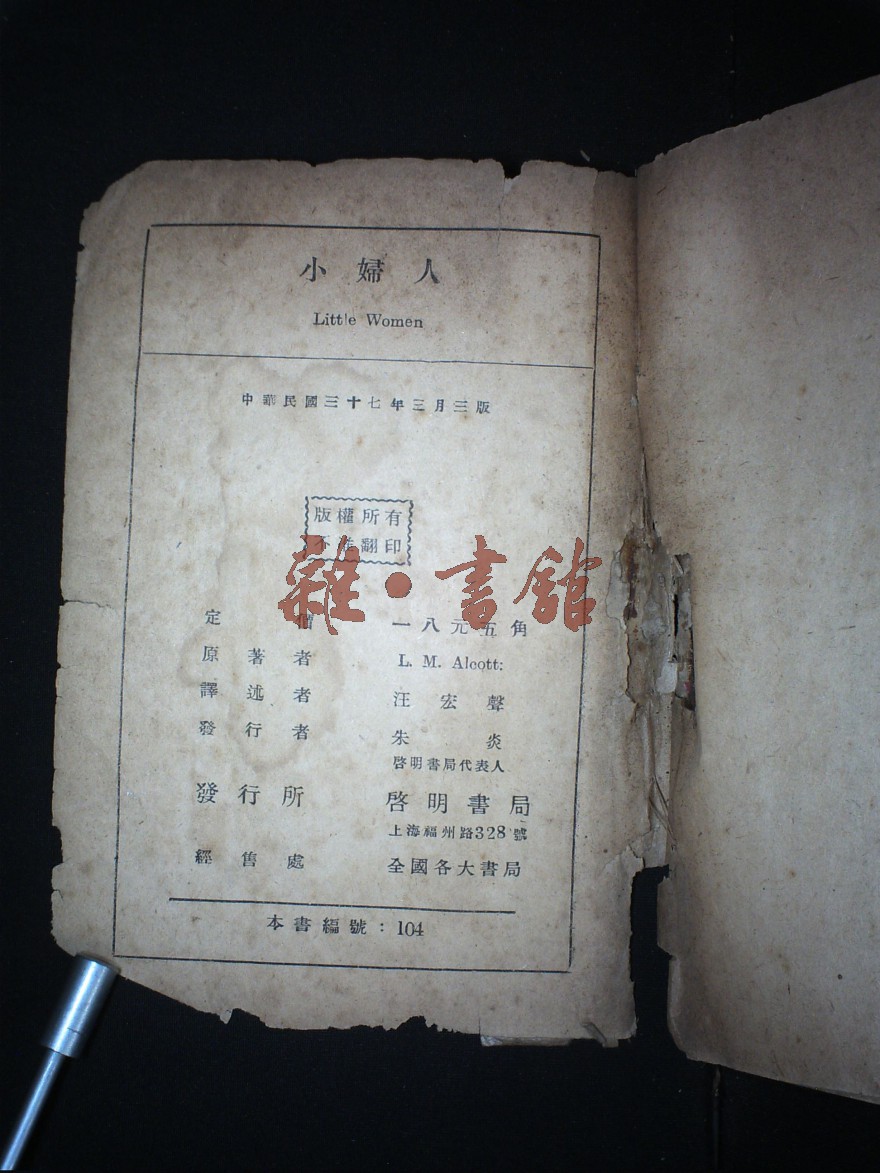 小婦人
Little Women
中華民國三十七年三月三版
版權所有
不准翻印
雜·書館
定價 一八元五角
原著者 L. M. Alcott:
譯述者 汪宏聲
發行者 朱炎
啓明書局代表人
發行所 啓明書局
上海福州路328號
經售處 全國各大書局
本書編號：104